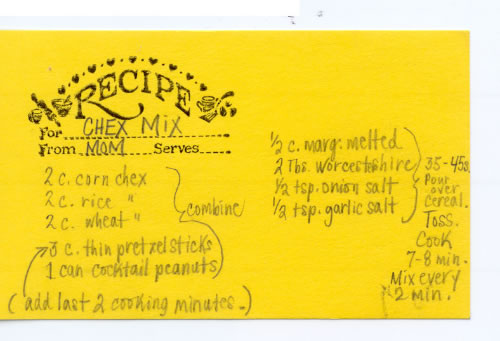 RECIPE
For CHEX MIX
From MOM Serves
2 c. corn chex
2 c. rice "
2 c. wheat "
combine
3 c. thin pretzel sticks
1 can cocktail peanuts
(add last 2 cooking minutes.)
1/2 c. marg. melted
2 Tbs. Worcestshire
1/2 tsp. onion salt
1/2 tsp. garlic salt
35-45s.
Pour
over
cereal.
Toss.
Cook
7-8 min.
Mix every
2 min.